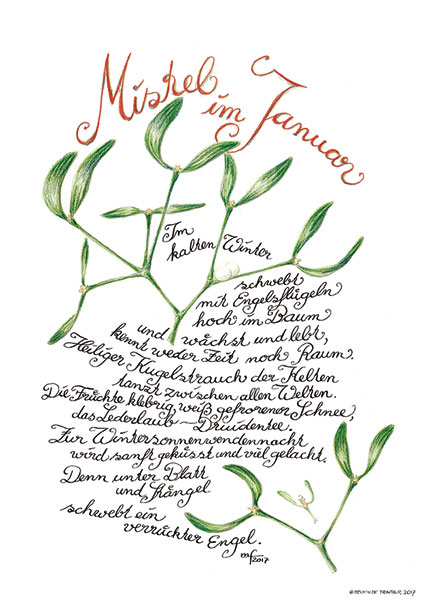 Mistel
im
Januar
Im
kalten Winter
schwebt
mit Engelsflügeln
hoch im Baum
und wächst und lebt,
kennt weder Zeit noch Raum.
Heiliger Kugelstrauch der Kelten
tanzt zwischen allen Welten.
Die Früchte klebrig, weiß gefrorener Schnee,
das Lederlaub - Druidentee.
Zur Wintersonnenwendennacht
wird sanft geküsst und viel gelacht.
Denn unter Blatt
und Stängel
schwebt ein
verrückter Engel.
2017
2017